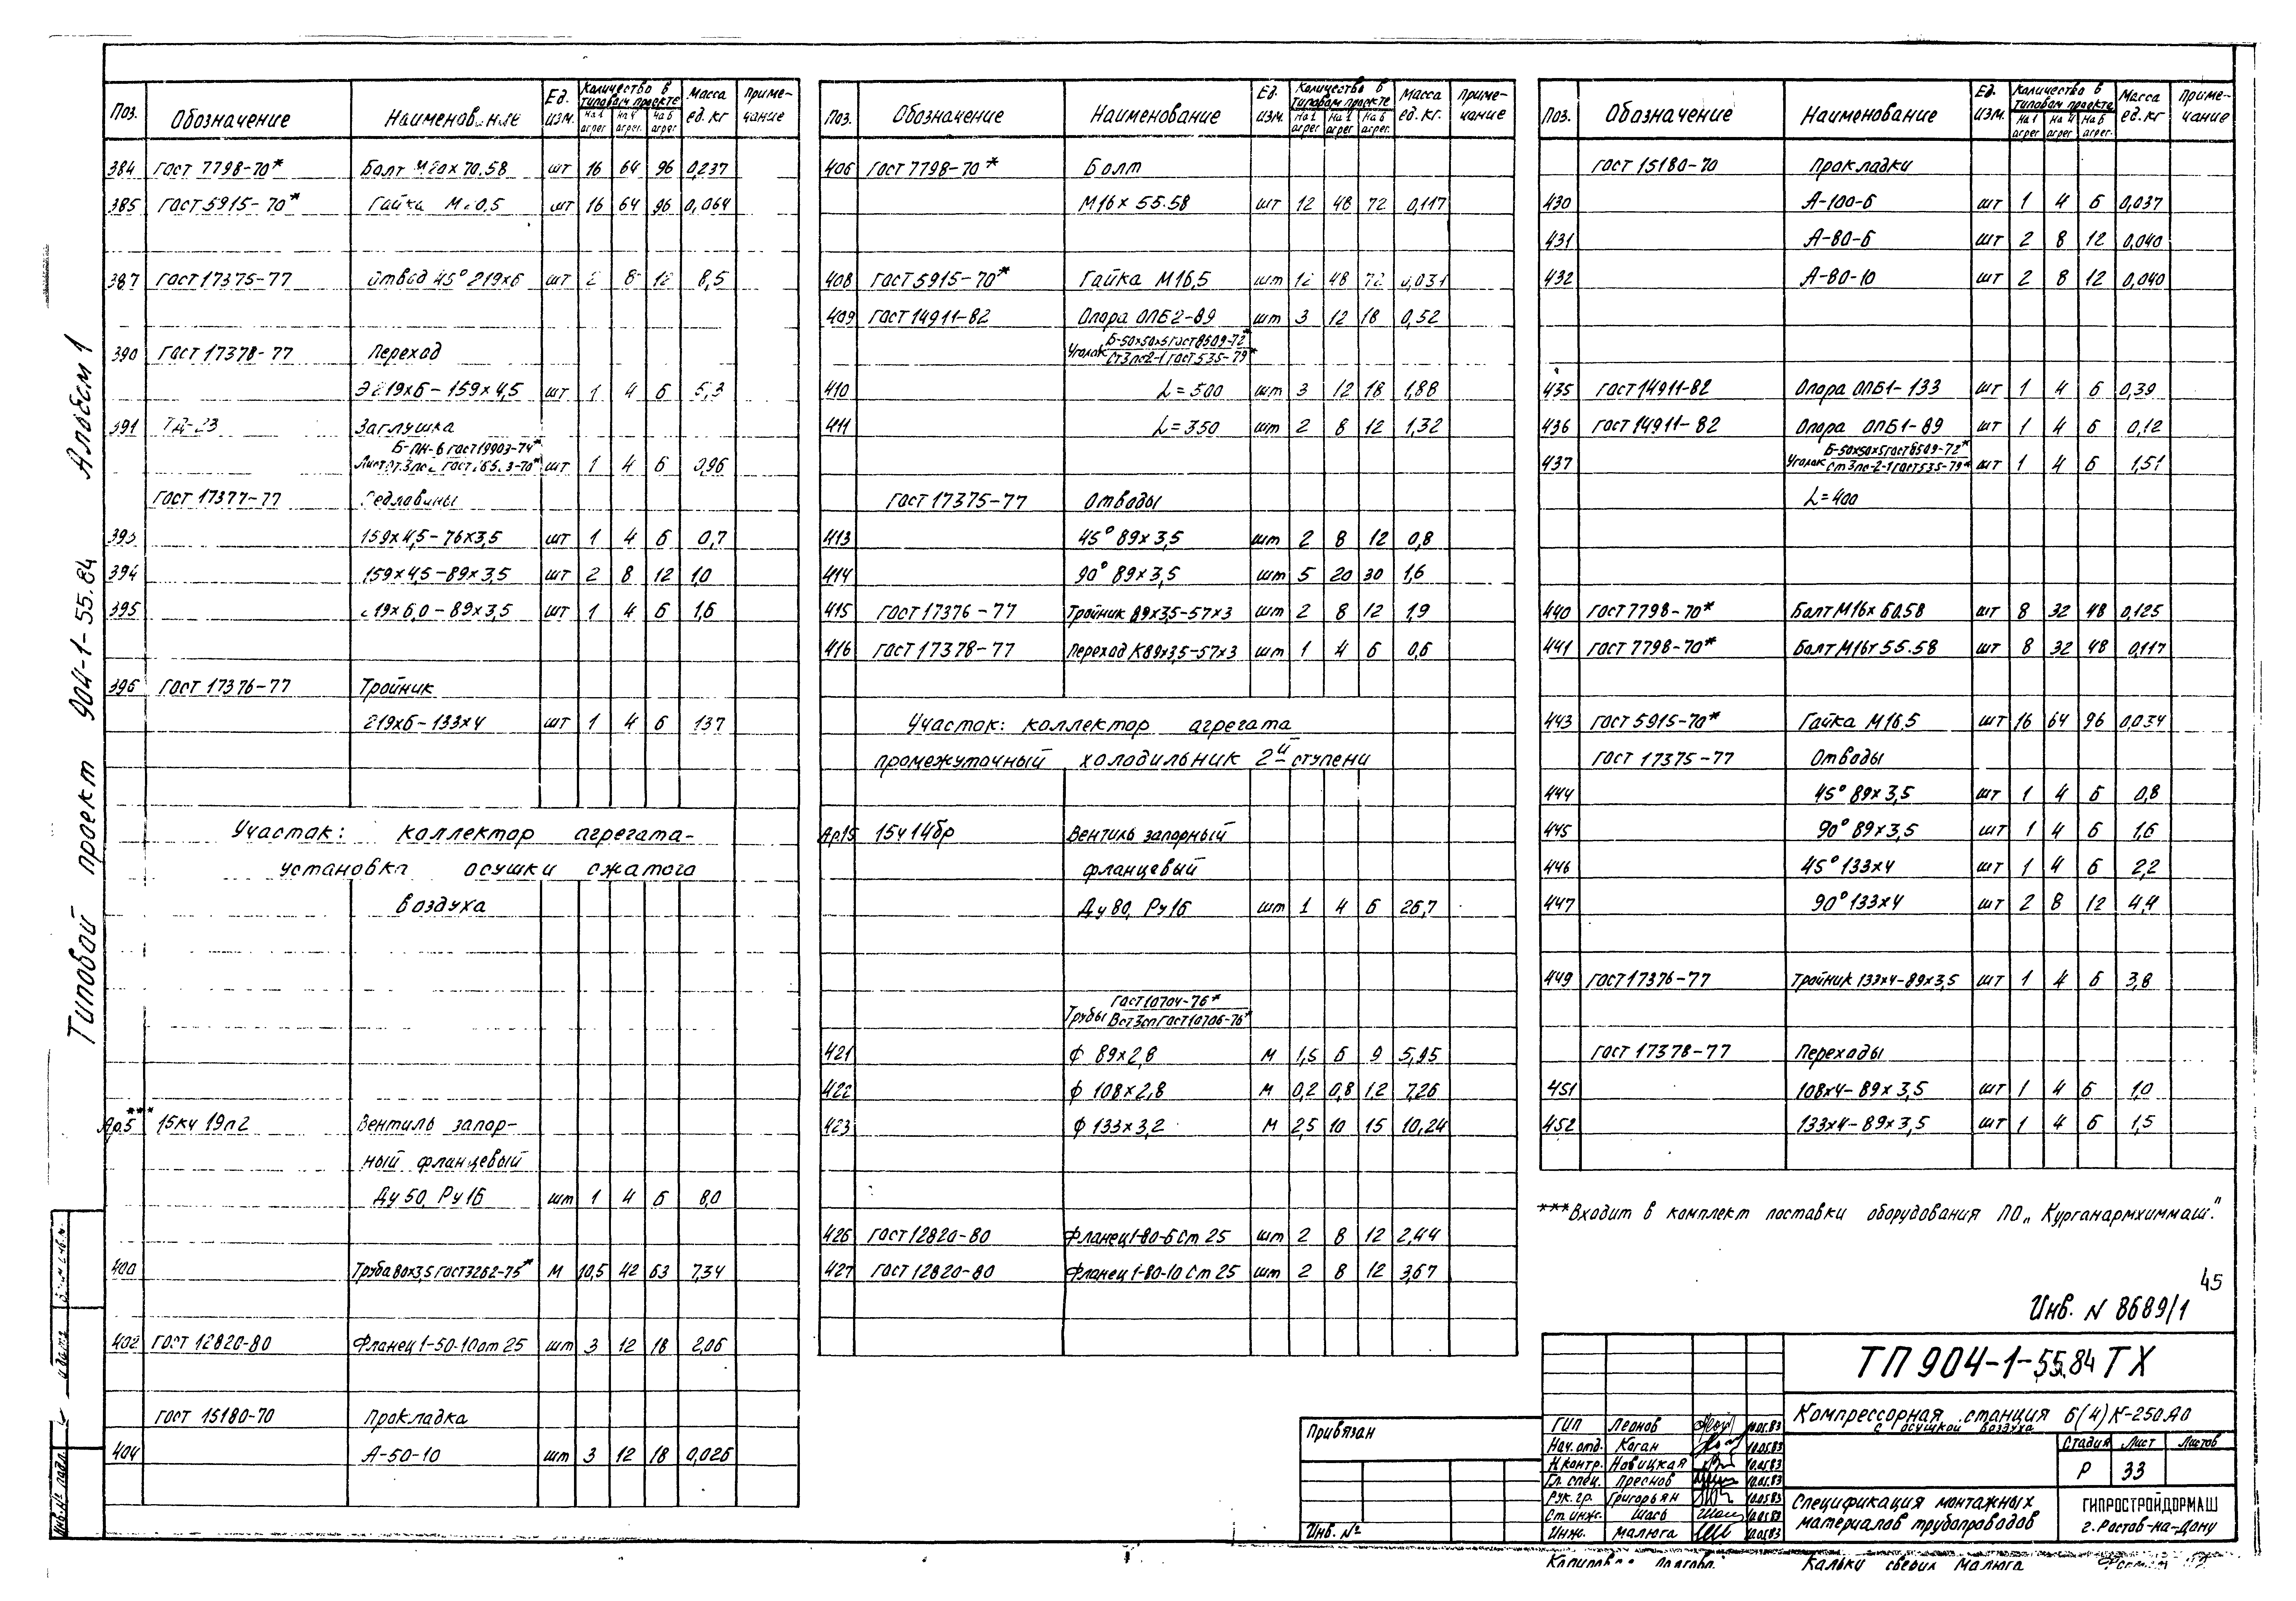 Типовой проект 904-1-55.84 Альбом 1
Поз. Обозначение Наименование Ед. изм. Количество в типовом проекте на 1 агрег. на 4 агрег. на 6 агрег. Масса ед. кг Приме-чание
384 ГОСТ 7798-70* Болт М20х70.58 шт 16 64 96 0,237
385 ГОСТ 5915-70* Гайка М20.5 шт 16 64 96 0,064
387 ГОСТ 17375-77 Отвод 45° 219х6 шт 2 8 12 8,5
390 ГОСТ 17378-77 Переход
Э 219х6-159х4,5 шт 1 4 6 5,3
391 ТД-23 Заглушка
Б-ПН-6 ГОСТ 19903-74*
Лист шт 1 4 6 0,96
ГОСТ 17377-77 Седловины
393 159х4,5-76х3,5 шт 1 4 6 0,7
394 159х4,5-89х3,5 шт 2 8 12 1,0
395 219х6,0-89х3,5 шт 1 4 6 1,6
396 ГОСТ 17376-77 Тройник
219х6-133х4 шт 1 4 6 13,7
Участок: коллектор агрегата-
установка осушки сжатого
воздуха
Ар.5*** 15кч 19п2 Вентиль запор-
ный фланцевый
Ду 50, Ру 16 шт 1 4 6 8,0
400 Труба 80х3,5 ГОСТ 3262-75* м 10,5 42 63 7,34
402 ГОСТ 12820-80 Фланец 1-50-10 ст 25 шт 3 12 18 2,06
ГОСТ 15180-70 Прокладка
404 А-50-10 шт 3 12 18 0,026
Поз. Обозначение Наименование Ед. изм. Количество в типовом проекте на 1 агрег. на 1 агрег. на 6 агрег. Масса ед. кг. Приме-чание
406 ГОСТ 7798-70* Болт
М16х55.58 шт 12 48 72 0,117
408 ГОСТ 5915-70* Гайка М16.5 шт 12 48 72 0,031
409 ГОСТ 14911-82 Опора ОПБ2-89 шт 3 12 18 0,52
Уголок Б-50х50х5 ГОСТ 8509-72*
Ст3пс2-1 ГОСТ 535-79*
410 L=500 шт 3 12 18 1,88
411 L=350 шт 2 8 12 1,32
ГОСТ 17375-77 Отводы
413 45° 89х3,5 шт 2 8 12 0,8
414 90° 89х3,5 шт 5 20 30 1,6
415 ГОСТ 17376-77 Тройник 89х3,5-57х3 шт 2 8 12 1,9
416 ГОСТ 17378-77 Переход К89х3,5-57х3 шт 1 4 6 0,6
Участок: коллектор агрегата
промежуточный холодильник 2й ступени
Ар.15 15ч 14бр Вентиль запорный
фланцевый
Ду 80, Ру 16 шт 1 4 6 26,7
Трубы ГОСТ 10704-76*
ВСт3сп ГОСТ 10706-76*
421 ф 89х2,8 м 1,5 6 9 5,95
422 ф 108х2,8 м 0,2 0,8 1,2 7,26
423 ф 133х3,2 м 2,5 10 15 10,24
426 ГОСТ 12820-80 Фланец 1-80-6 Ст 25 шт 2 8 12 2,44
427 ГОСТ 12820-80 Фланец 1-80-10 Ст 25 шт 2 8 12 3,67
Поз. Обозначение Наименование Ед. изм. Количество в типовом проекте на 1 агрег. на 4 агрег. на 6 агрег. Масса ед. кг Приме-чание
ГОСТ 15180-70 Прокладки
430 А-100-6 шт 1 4 6 0,037
431 А-80-6 шт 2 8 12 0,040
432 А-80-10 шт 2 8 12 0,040
435 ГОСТ 14911-82 Опора ОПБ1-133 шт 1 4 6 0,39
436 ГОСТ 14911-82 Опора ОПБ1-89 шт 1 4 6 0,12
437 Уголок Б-50х50х5 ГОСТ 8509-72*
Ст3пс-2-1 ГОСТ 535-79* шт 1 4 6 1,51
L=400
440 ГОСТ 7798-70* Болт М16х60.58 шт 8 32 48 0,125
441 ГОСТ 7798-70* Болт М16х55.58 шт 8 32 48 0,117
443 ГОСТ 5915-70* Гайка М16.5 шт 16 64 96 0,034
ГОСТ 17375-77 Отводы
444 45° 89х3,5 шт 1 4 6 0,8
445 90° 89х3,5 шт 1 4 6 1,6
446 45° 133х4 шт 1 4 6 2,2
447 90° 133х4 шт 2 8 12 4,4
449 ГОСТ 17376-77 Тройник 133х4-89х3,5 шт 1 4 6 3,8
ГОСТ 17378-77 Переходы
451 108х4-89х3,5 шт 1 4 6 1,0
452 133х4-89х3,5 шт 1 4 6 1,5
***Входит в комплект поставки оборудования ПО „Курганармхиммаш".
45
Инв. N 8689/1
ТП 904-1-55.84 ТХ
Компрессорная станция 6(4)К-250А0
с осушкой воздуха
Стадия Лист Листов
Р 33
Спецификация монтажных
материалов трубопроводов
ГИПРОСТРОЙДОРМАШ
г. Ростов-на-Дону
ГИП Леонов 10.05.83
Нач. отд. Коган 10.05.83
Н.контр. Новицкая 10.05.83
Гл. спец. Преснов 10.05.83
Рук. гр. Григорьян 10.05.83
Ст. инж. Шаев 10.05.83
Инж. Малюга 10.05.83
Привязан
Инв. №
Инв. № подл.
Копировал
Кальку сверил Малюга
Формат